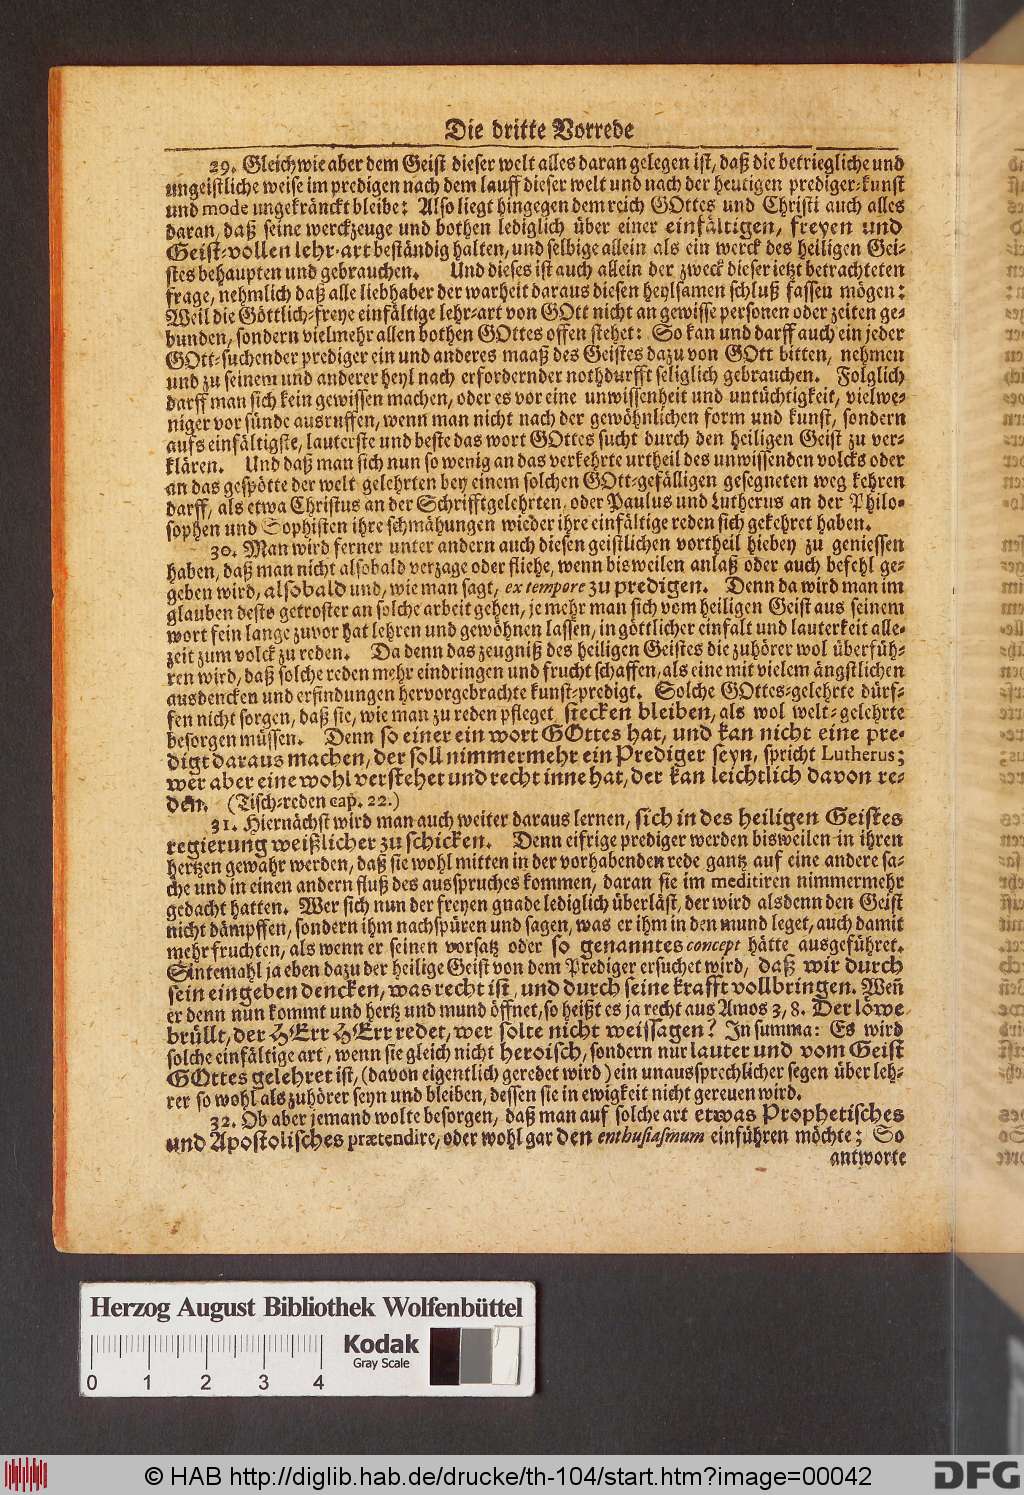 Die dritte Vorrede
29. Gleichwie aber dem Geist dieser welt alles daran gelegen ist, daß die betriegliche und
ungeistliche weise im predigen nach dem lauff dieser welt und nach der heutigen prediger-kunst
und mode ungekränckt bleibe: Also liegt hingegen dem reich GOttes und Christi auch alles
daran, daß seine werckzeuge und bothen lediglich über einer einfältigen, freyen und
Geist-vollen lehr-art beständig halten, und selbige allein als ein werck des heiligen Gei-
stes behaupten und gebrauchen. Und dieses ist auch allein der zweck dieser ietzt betrachteten
frage, nehmlich daß alle liebhaber der warheit daraus diesen heylsamen schluß fassen mögen:
Weil die Göttlich-freye einfältige lehr-art von GOtt nicht an gewisse personen oder zeiten ge-
bunden, sondern vielmehr allen bothen GOttes offen stehet: So kan und darff auch ein jeder
GOtt-suchender prediger ein und anderes maaß des Geistes dazu von GOtt bitten, nehmen
und zu seinem und anderer heyl nach erfordernder nothdurfft seliglich gebrauchen. Folglich
darff man sich kein gewissen machen, oder es vor eine unwissenheit und untüchtigkeit, vielwe-
niger vor sünde ausruffen, wenn man nicht nach der gewöhnlichen form und kunst, sondern
aufs einfältigste, lauterste und beste das wort GOttes sucht durch den heiligen Geist zu ver-
klären. Und daß man sich nun so wenig an das verkehrte urtheil des unwissenden volcks oder
an das gespötte der welt gelehrten bey einem solchen GOtt-gefälligen gesegneten weg kehren
darff, als etwa Christus an der Schrifftgelehrten, oder Paulus und Lutherus an der Philo-
sophen und Sophisten ihre schmähungen wieder ihre einfältige reden sich gekehret haben.
30. Man wird ferner unter andern auch diesen geistlichen vortheil hiebey zu geniessen
haben, daß man nicht alsobald verzage oder fliehe, wenn bisweilen anlaß oder auch befehl ge-
geben wird, alsobald und, wie man sagt, ex tempore zu predigen. Denn da wird man im
glauben desto getroster an solche arbeit gehen, je mehr man sich vom heiligen Geist aus seinem
wort fein lange zuvor hat lehren und gewöhnen lassen, in göttlicher einfalt und lauterkeit alle-
zeit zum volck zu reden. Da denn das zeugniß des heiligen Geistes die zuhörer wol überfüh-
ren wird, daß solche reden mehr eindringen und frucht schaffen, als eine mit vielem ängstlichen
ausdencken und erfindungen hervorgebrachte kunst-predigt. Solche GOttes-gelehrte dürf-
fen nicht sorgen, daß sie, wie man zu reden pfleget, stecken bleiben, als wol welt-gelehrte
besorgen müssen. Denn so einer ein wort GOttes hat, und kan nicht eine pre-
digt daraus machen, der soll nimmermehr ein Prediger seyn, spricht Lutherus;
wer aber eine wohl verstehet und recht inne hat, der kan leichtlich davon re-
den. (Tisch-reden cap. 22.)
31. Hiernächst wird man auch weiter daraus lernen, sich in des heiligen Geistes
regierung weißlicher zu schicken. Denn eifrige prediger werden bisweilen in ihren
hertzen gewahr werden, daß sie wohl mitten in der vorhabenden rede gantz auf eine andere sa-
che und in einen andern fluß des ausspruches kommen, daran sie im meditiren nimmermehr
gedacht hatten. Wer sich nun der freyen gnade lediglich überläst, der wird alsdenn den Geist
nicht dämpffen, sondern ihm nachspüren und sagen, was er ihm in den mund leget, auch damit
mehr fruchten, als wenn er seinen vorsatz oder so genanntes concept hätte ausgeführet.
Sintemahl ja eben dazu der heilige Geist von dem Prediger ersuchet wird, daß wir durch
sein eingeben dencken, was recht ist, und durch seine krafft vollbringen. Weñ
er denn nun kommt und hertz und mund öffnet, so heißt es ja recht aus Amos 3, 8. Der löwe
brüllt, der HErr HErr redet, wer solte nicht weissagen? In summa: Es wird
solche einfältige art, wenn sie gleich nicht heroisch, sondern nur lauter und vom Geist
GOttes gelehret ist, (davon eigentlich geredet wird) ein unaussprechlicher segen über leh-
rer so wohl als zuhörer seyn und bleiben, dessen sie in ewigkeit nicht gereuen wird.
32. Ob aber jemand wolte besorgen, daß man auf solche art etwas Prophetisches
und Apostolisches prætendire, oder wohl gar den enthusiasmum einführen möchte; So
antworte
Herzog August Bibliothek Wolfenbüttel
Kodak
Gray Scale
0 1 2 3 4
© HAB http://diglib.hab.de/drucke/th-104/start.htm?image=00042
DFG